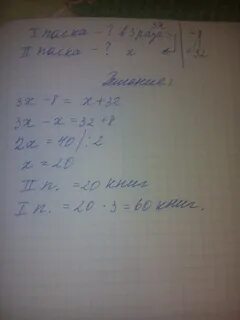 I полка - ? в 3 раза 3x -8
II полка - ? x +32
Решение:
3x - 8 = x + 32
3x - x = 32 + 8
2x = 40 /: 2
x = 20
II п. = 20 книг
I п. = 20 · 3 = 60 книг.